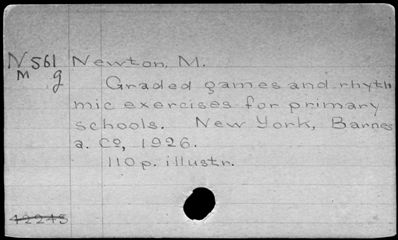 N 561 Newton, M.
M g
Graded games and rhyth
mic exercises for primary
schools. New York, Barnes
a. Co, 1926.
110 p. illustr.
42245